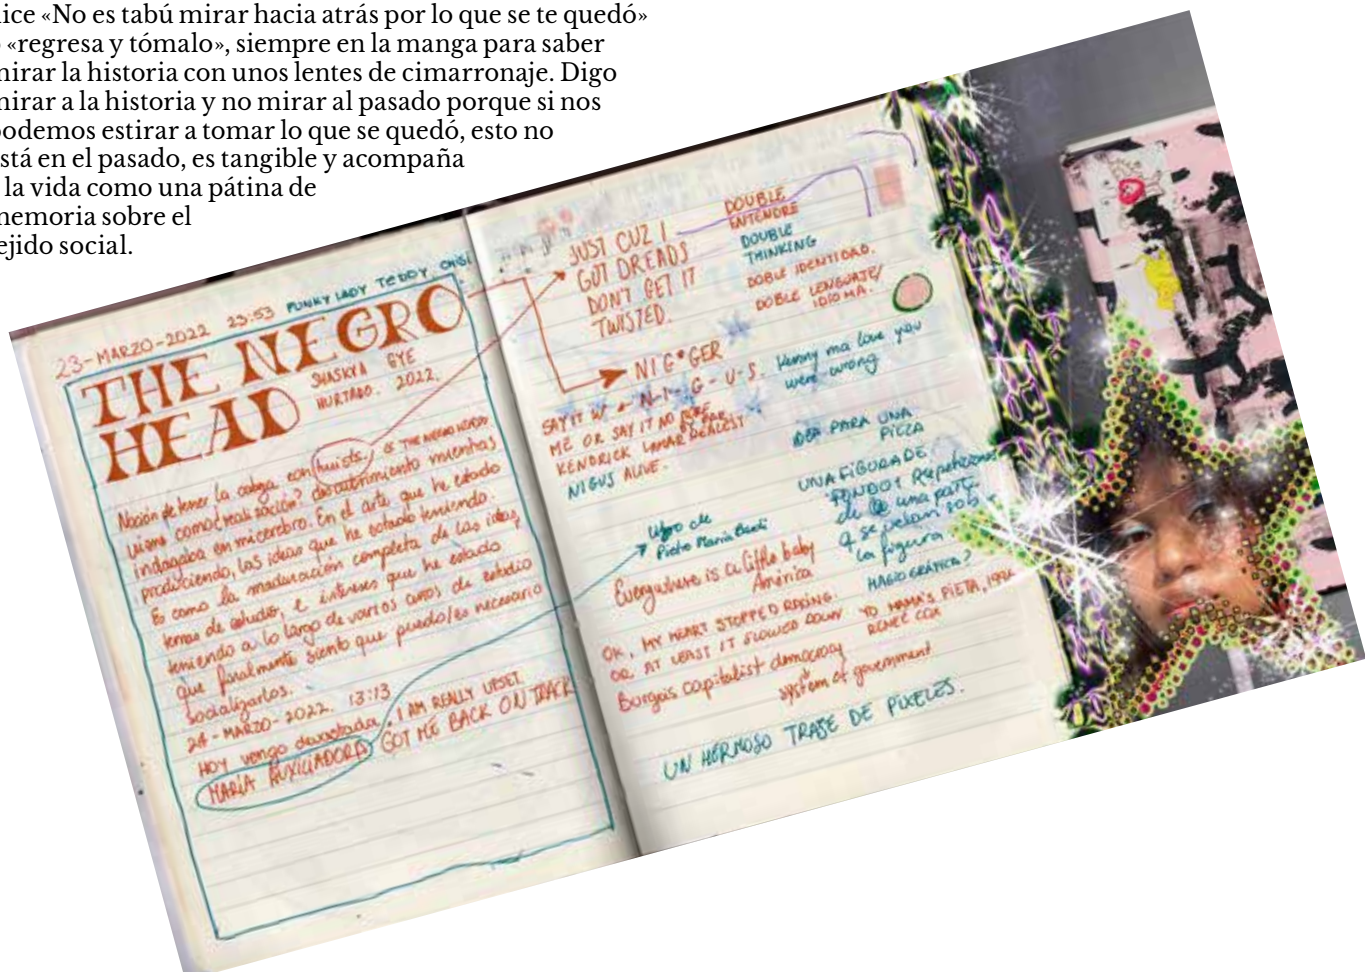 ice «No es tabú mirar hacia atrás por lo que se te quedó»
«regresa y tómalo», siempre en la manga para saber
mirar la historia con unos lentes de cimarronaje. Digo
mirar a la historia y no mirar al pasado porque si nos
podemos estirar a tomar lo que se quedó, esto no
stá en el pasado, es tangible y acompaña
la vida como una pátina de
memoria sobre el
ejido social.
23-MARZO-2022 23:53 FUNKY LADY TEDDY
THE NEGRO
HEAD
SHASKYA GYE
HURTADO. 2022.
Noción de tener la cabeza con twists.
mismo como ( realización? descubrimiento mientras
indagaba en mi cerebro. En el arte que he estado
produciendo, las ideas que he estado teniendo.
Es como la maduración completa de las ideas,
temas de estudio, e intereses que he estado
teniendo a lo largo de varios años de estudio
que finalmente siento que puedo/es necesario
socializarlos.
24-MARZO-2022. 13:13
HOY vengo devastada. I AM REALLY UPSET.
MARÍA AUXILIADORA GOT ME BACK ON TRACK
JUST CUZ I
GOT DREADS
DON'T GET IT
TWISTED.
DOUBLE
ENTENDRE
DOUBLE
THINKING
DOBLE IDENTIDAD.
DOBLE LENGUAJE/
IDIOMA.
NIG*GER
N-I-G-U-S.
Kenny ma love you
were wrong
SAY IT W/
ME OR SAY IT NO MORE
KENDRICK LAMAR BY FAR REALEST
NIGUS ALIVE.
IDEA PARA UNA
PIEZA
UNA FIGURA DE
FONDO? Repeticiones
de una parte
q se vean sob
la figura.
HAGIOGRÁFICA?
Libro de
Pietro Maria Bardi
Everywhere is a little baby
América
OK, MY HEART STOPPED RACING
OR AT LEAST IT SLOWED DOWN
YO MAMA'S PIETA, 1994
RENEÉ COX
Burgois capitalist democracy
system of government
UN HERMOSO TRAJE DE PIXELES.